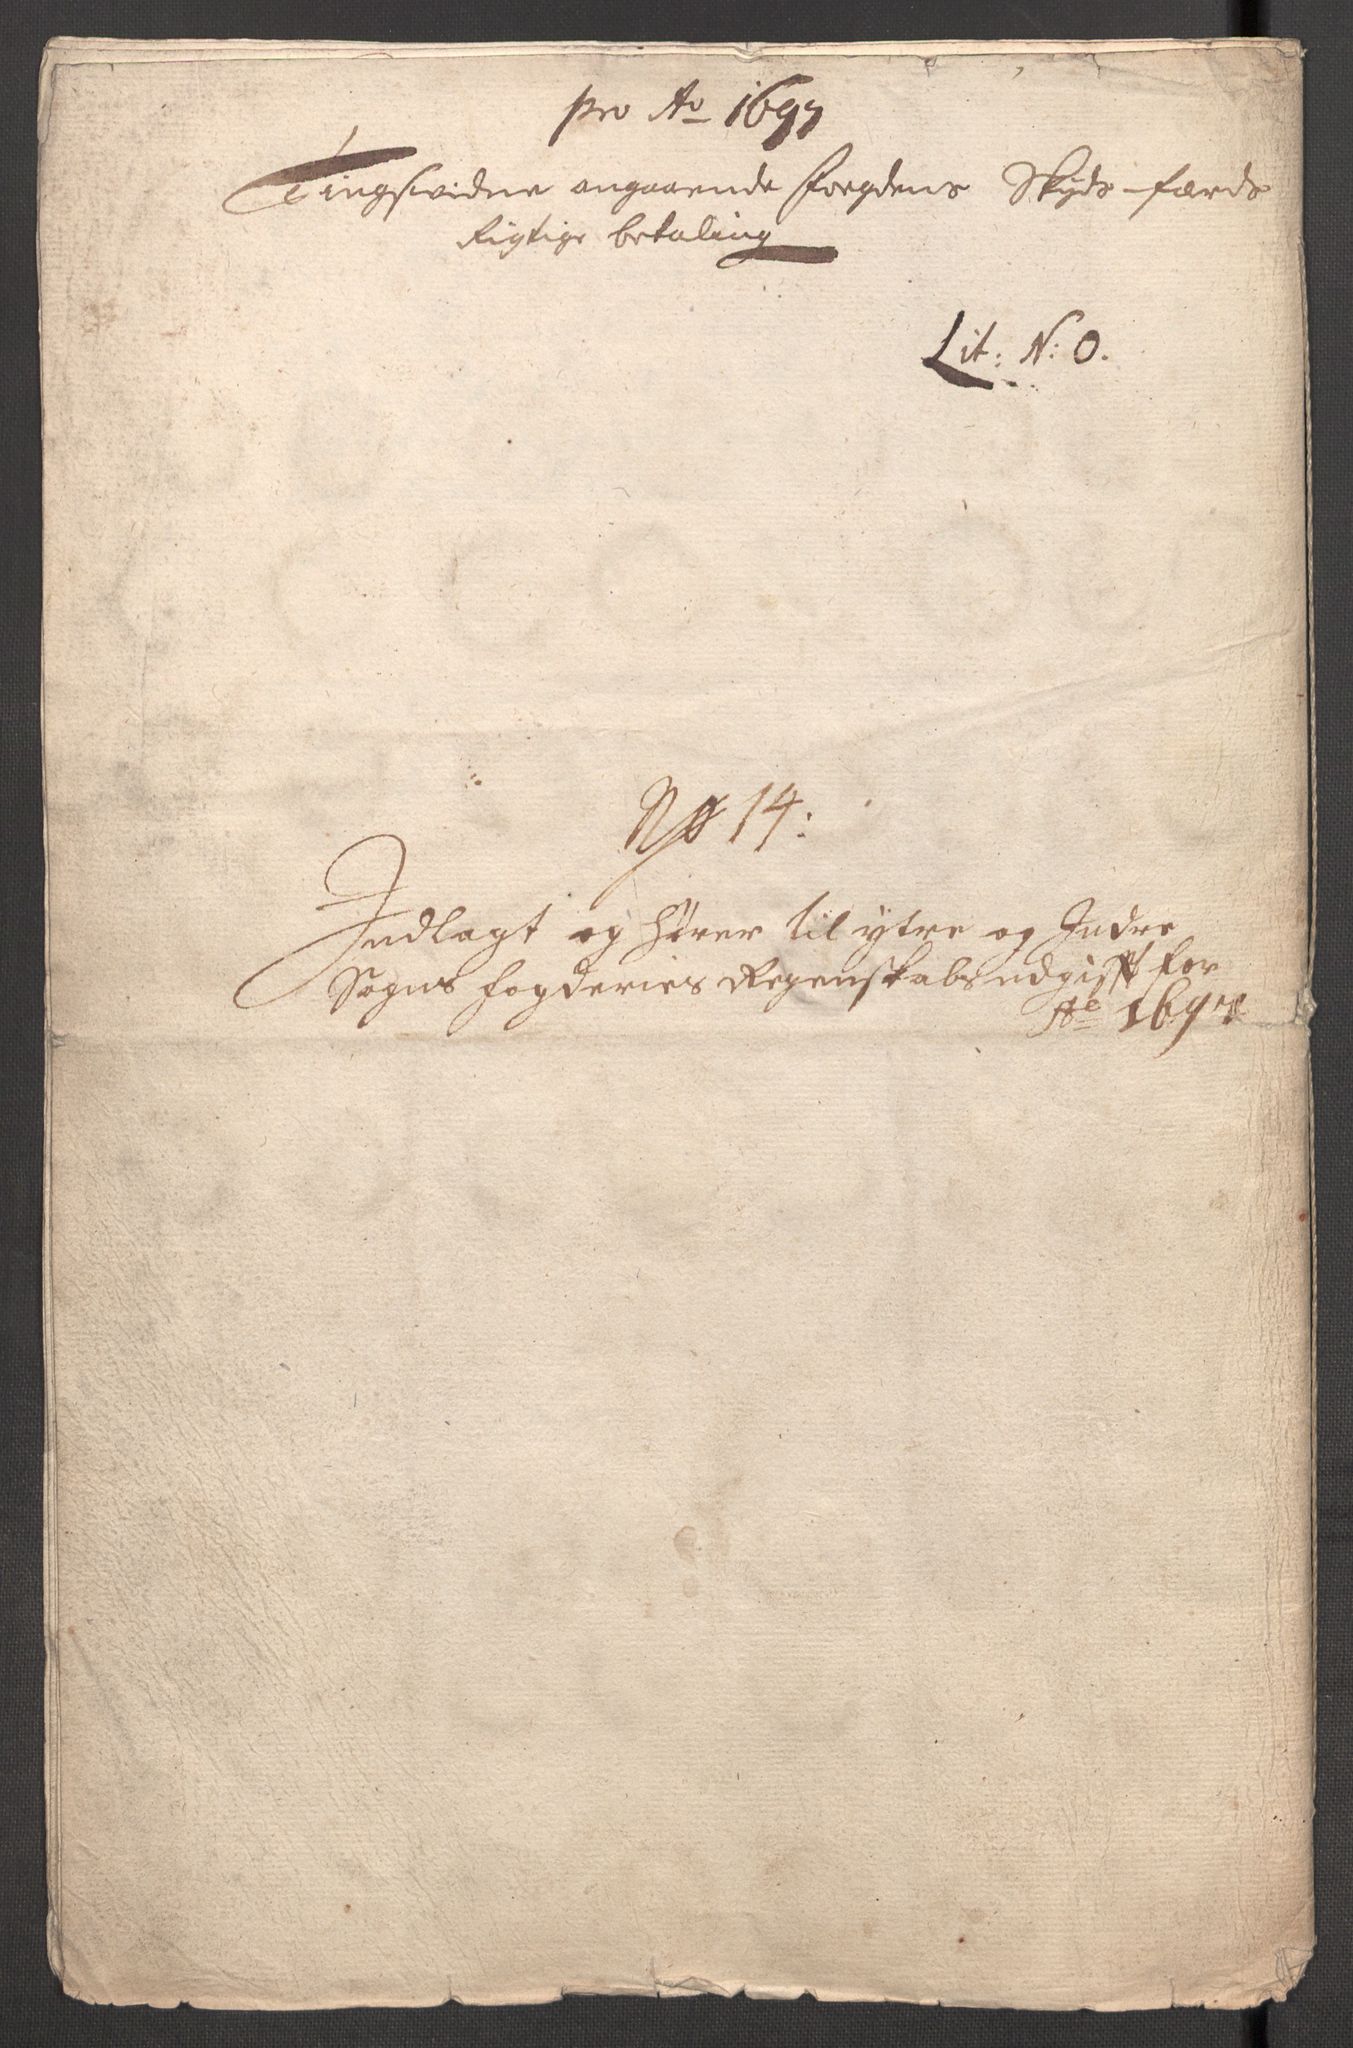 pro Ao 1697
Tingswidne angaaende Foegdens Skyds-færds
Rigtige betaling
Lit: N: O.
No 14:
Indlagt og hører til ytre og Indre
Sogns fogderies Regenskabs udgifft for
Ao 1697